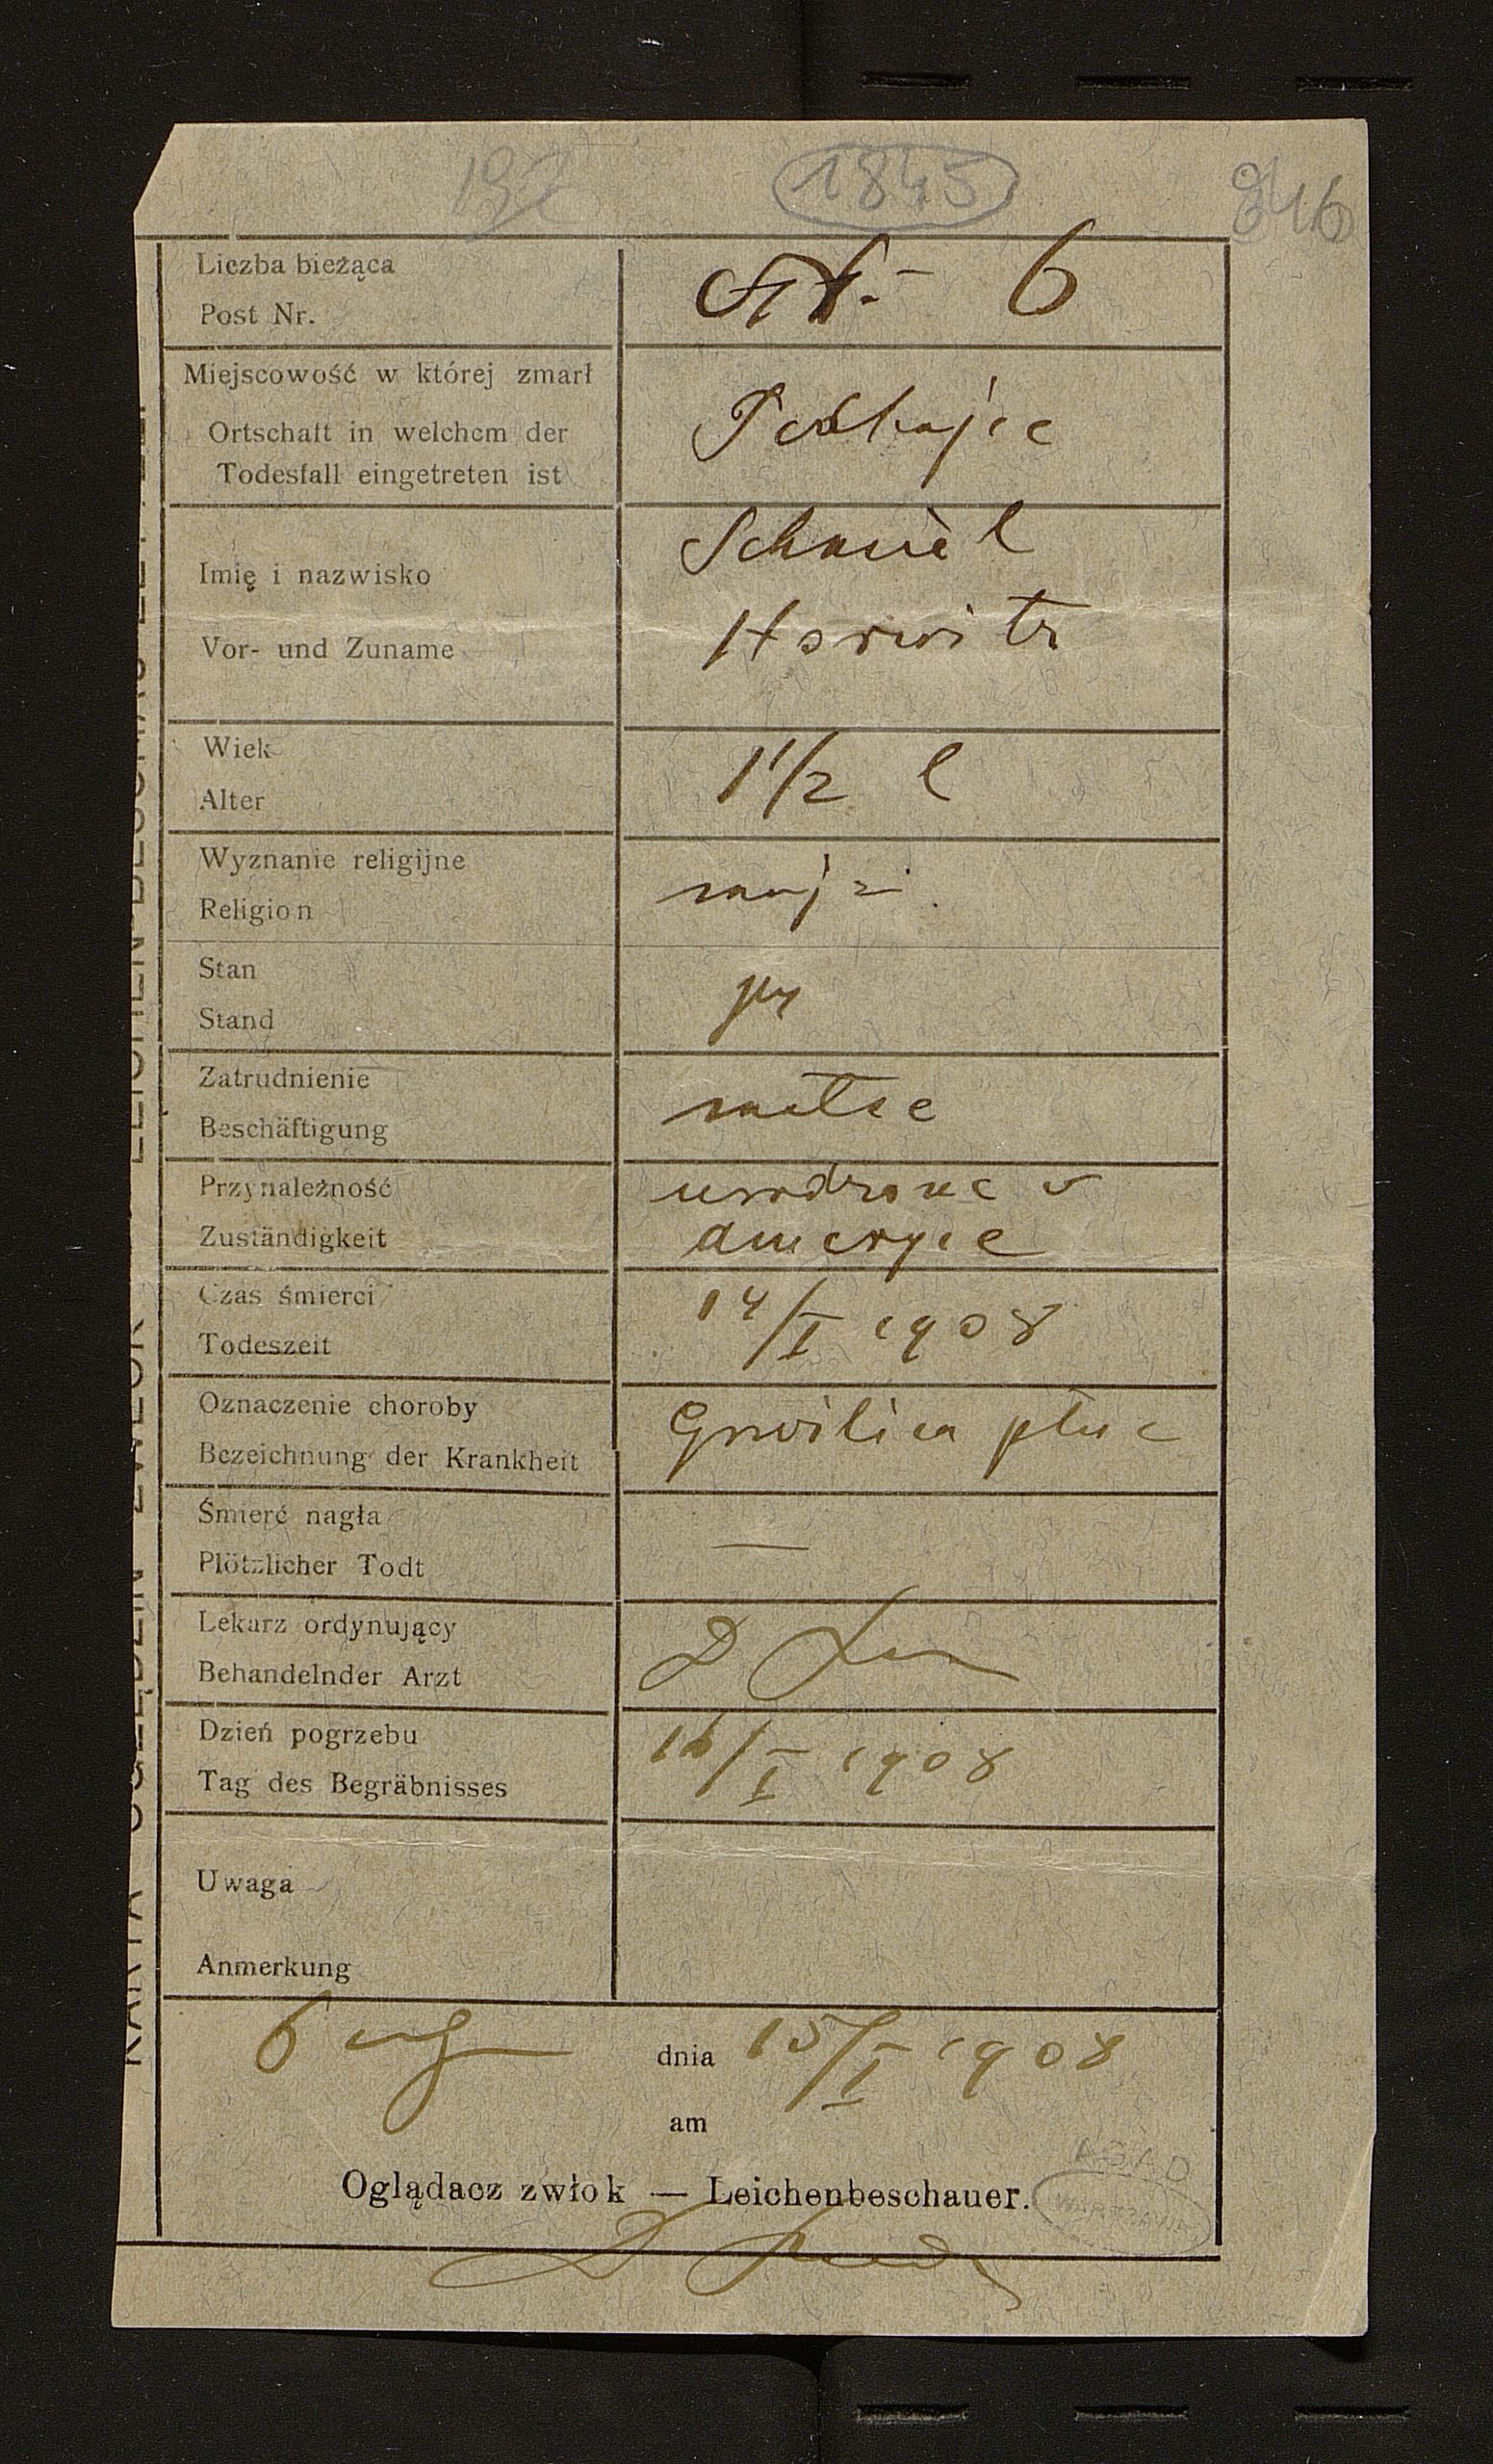 192 1845 846
Liczba bieżąca
Post Nr.
6
Miejscowość w której zmarł
Ortschaft in welchem der
Todesfall eingetreten ist
Podhajce
Imię i nazwisko
Vor- und Zuname
Schmiel
Horwitz
Wiek
Alter
1 1/2 l
Wyznanie religijne
Religion
mojż.
Stan
Stand
Zatrudnienie
Beschäftigung
Przynależność
Zuständigkeit
urodzone w
Ameryce
Czas śmierci
Todeszeit
14/I 1908
Oznaczenie choroby
Bezeichnung der Krankheit
Gruźlica płuc
Śmierć nagła
Plötzlicher Todt
—
Lekarz ordynujący
Behandelnder Arzt
D
Dzień pogrzebu
Tag des Begräbnisses
16/I 1908
Uwaga
Anmerkung
dnia 15/I 1908
am
Oglądacz zwłok — Leichenbeschauer.
AGAD
WARSZAWA